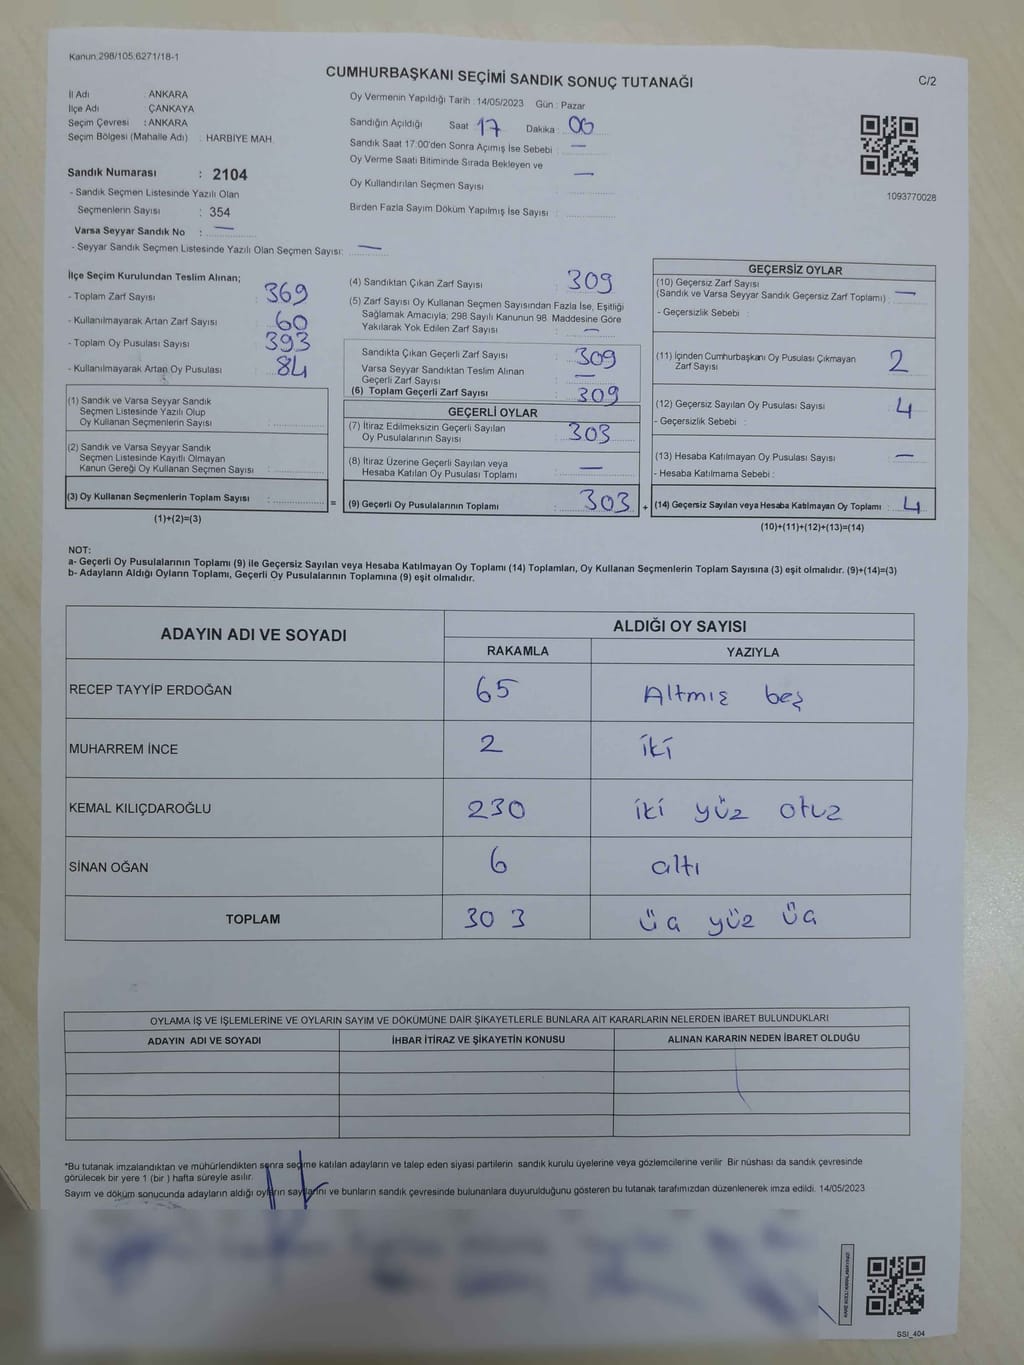 Kanun.298/105,6271/18-1
CUMHURBAŞKANI SEÇİMİ SANDIK SONUÇ TUTANAĞI
C/2
İl Adı : ANKARA
İlçe Adı : ÇANKAYA
Seçim Çevresi : ANKARA
Seçim Bölgesi (Mahalle Adı) : HARBİYE MAH.
Sandık Numarası : 2104
- Sandık Seçmen Listesinde Yazılı Olan
Seçmenlerin Sayısı : 354
Varsa Seyyar Sandık No : —
- Seyyar Sandık Seçmen Listesinde Yazılı Olan Seçmen Sayısı: —
Oy Vermenin Yapıldığı Tarih : 14/05/2023 Gün : Pazar
Sandığın Açıldığı Saat 17 Dakika : 00
Sandık Saat 17:00'den Sonra Açımış İse Sebebi : —
Oy Verme Saati Bitiminde Sırada Bekleyen ve
Oy Kullandırılan Seçmen Sayısı : —
Birden Fazla Sayım Döküm Yapılmış İse Sayısı :
1093770028
İlçe Seçim Kurulundan Teslim Alınan;
- Toplam Zarf Sayısı : 369
- Kullanılmayarak Artan Zarf Sayısı : 60
- Toplam Oy Pusulası Sayısı : 393
- Kullanılmayarak Artan Oy Pusulası : 84
(1) Sandık ve Varsa Seyyar Sandık
Seçmen Listesinde Yazılı Olup
Oy Kullanan Seçmenlerin Sayısı :
(2) Sandık ve Varsa Seyyar Sandık
Seçmen Listesinde Kayıtlı Olmayan
Kanun Gereği Oy Kullanan Seçmen Sayısı :
(3) Oy Kullanan Seçmenlerin Toplam Sayısı :
(1)+(2)=(3)
(4) Sandıktan Çıkan Zarf Sayısı : 309
(5) Zarf Sayısı Oy Kullanan Seçmen Sayısından Fazla İse, Eşitliği
Sağlamak Amacıyla; 298 Sayılı Kanunun 98. Maddesine Göre
Yakılarak Yok Edilen Zarf Sayısı : —
Sandıkta Çıkan Geçerli Zarf Sayısı : 309
Varsa Seyyar Sandıktan Teslim Alınan
Geçerli Zarf Sayısı : —
(6) Toplam Geçerli Zarf Sayısı : 309
GEÇERLİ OYLAR
(7) İtiraz Edilmeksizin Geçerli Sayılan
Oy Pusulalarının Sayısı : 303
(8) İtiraz Üzerine Geçerli Sayılan veya
Hesaba Katılan Oy Pusulası Toplamı : —
= (9) Geçerli Oy Pusulalarının Toplamı : 303
GEÇERSİZ OYLAR
(10) Geçersiz Zarf Sayısı
(Sandık ve Varsa Seyyar Sandık Geçersiz Zarf Toplamı) : —
- Geçersizlik Sebebi :
(11) İçinden Cumhurbaşkanı Oy Pusulası Çıkmayan
Zarf Sayısı : 2
(12) Geçersiz Sayılan Oy Pusulası Sayısı : 4
- Geçersizlik Sebebi :
(13) Hesaba Katılmayan Oy Pusulası Sayısı : —
- Hesaba Katılmama Sebebi :
+ (14) Geçersiz Sayılan veya Hesaba Katılmayan Oy Toplamı : 4
(10)+(11)+(12)+(13)=(14)
NOT:
a- Geçerli Oy Pusulalarının Toplamı (9) ile Geçersiz Sayılan veya Hesaba Katılmayan Oy Toplamı (14) Toplamları, Oy Kullanan Seçmenlerin Toplam Sayısına (3) eşit olmalıdır. (9)+(14)=(3)
b- Adayların Aldığı Oyların Toplamı, Geçerli Oy Pusulalarının Toplamına (9) eşit olmalıdır.
ADAYIN ADI VE SOYADI ALDIĞI OY SAYISI
RAKAMLA YAZIYLA
RECEP TAYYİP ERDOĞAN 65 Altmış beş
MUHARREM İNCE 2 iki
KEMAL KILIÇDAROĞLU 230 iki yüz otuz
SİNAN OĞAN 6 altı
TOPLAM 303 üç yüz üç
OYLAMA İŞ VE İŞLEMLERİNE VE OYLARIN SAYIM VE DÖKÜMÜNE DAİR ŞİKAYETLERLE BUNLARA AİT KARARLARIN NELERDEN İBARET BULUNDUKLARI
ADAYIN ADI VE SOYADI İHBAR İTİRAZ VE ŞİKAYETİN KONUSU ALINAN KARARIN NEDEN İBARET OLDUĞU
*Bu tutanak imzalandıktan ve mühürlendikten sonra seçme katılan adayların ve talep eden siyasi partilerin sandık kurulu üyelerine veya gözlemcilerine verilir. Bir nüshası da sandık çevresinde
görülecek bir yere 1 (bir ) hafta süreyle asılır.
Sayım ve döküm sonucunda adayların aldığı oyların sayılarını ve bunların sandık çevresinde bulunanlara duyurulduğunu gösteren bu tutanak tarafımızdan düzenlenerek imza edildi. 14/05/2023
SSI_404